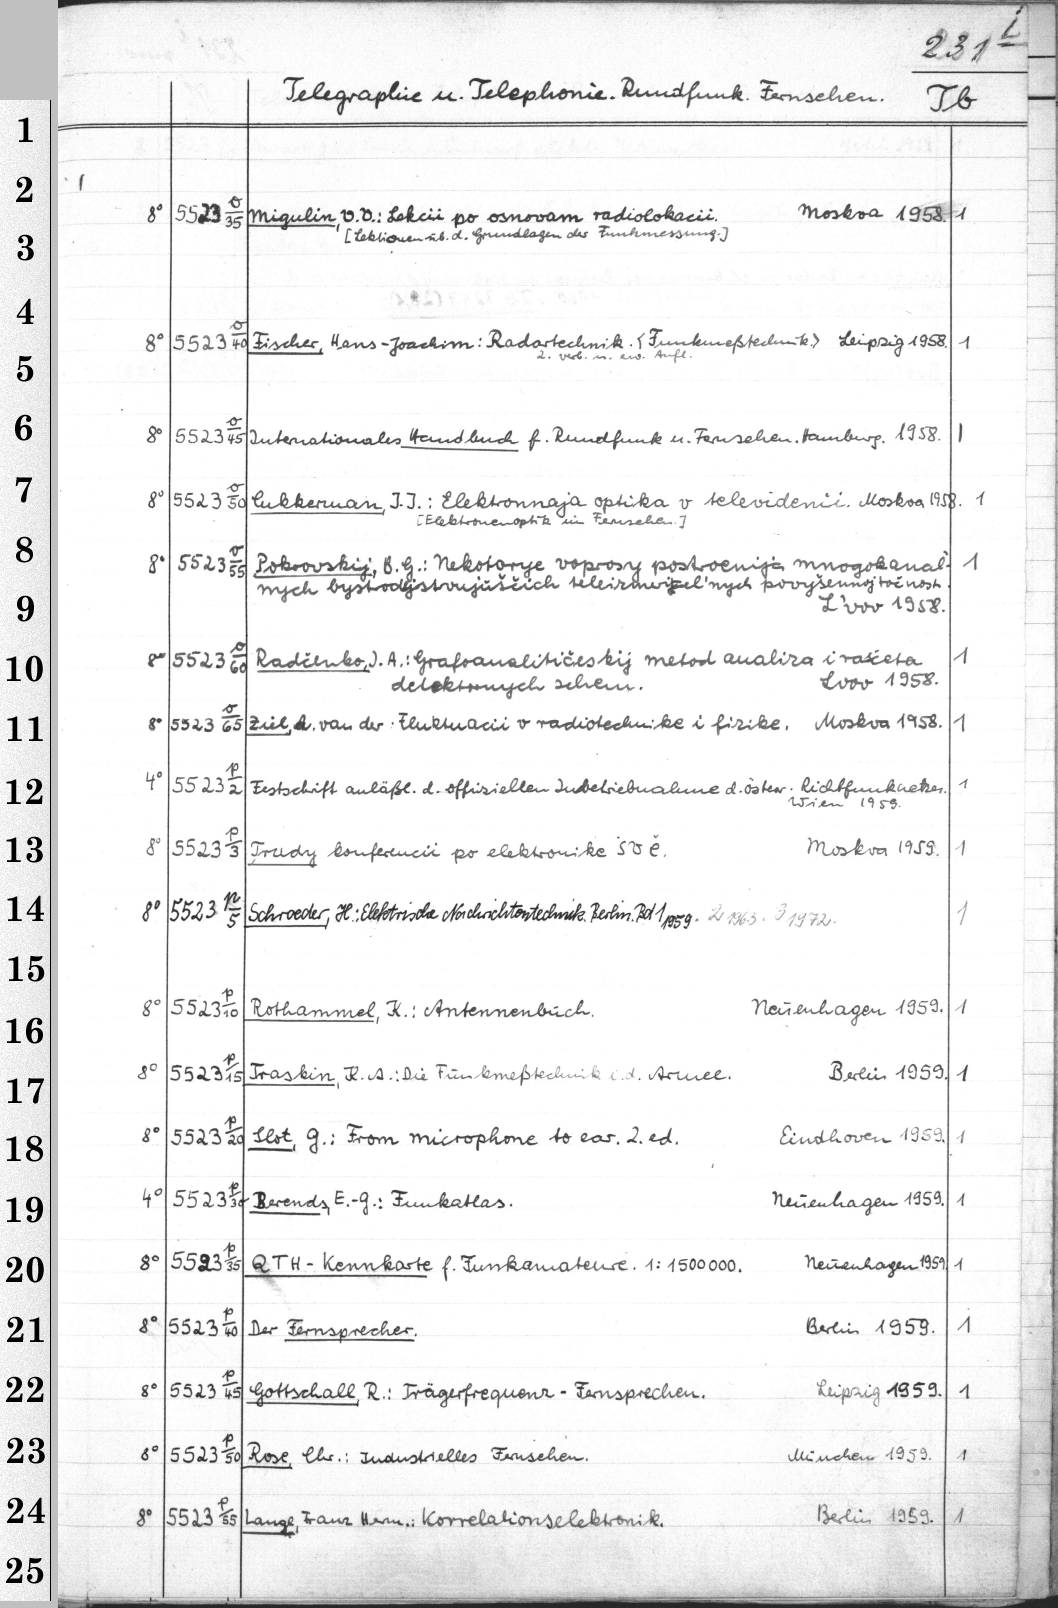 231 i
Telegraphie u. Telephonie. Rundfunk. Fernsehen. Tb
1
2
8° 5523 o/35 Migulin, V.V.: Lekcii po osnovam radiolokacii. Moskva 1958. 1
[Lektionen üb. d. Grundlagen der Funkmessung.]
3
4
8° 5523 o/40 Fischer, Hans-Joachim: Radartechnik. <Funkmeßtechnik.> Leipzig 1958. 1
2. verb. u. erw. Aufl.
5
6
8° 5523 o/45 Internationales Handbuch f. Rundfunk u. Fernsehen. Hamburg. 1958. 1
7
8° 5523 o/50 Cukkerman, I.I.: Elektronnaja optika v televidenii. Moskva 1958. 1
[Elektronenoptik im Fernsehen.]
8
8° 5523 o/55 Pokrovskij, B.G.: Nekotorye voprosy postroenija mnogokanal'- 1
nych bystrodejstvujuščich teleizmeritel'nych povyšennoj točnost.
9
L'vov 1958.
10
8° 5523 o/60 Radčenko, I. A.: Grafoanalitičeskij metod analiza i rasčeta 1
detektornych schem. Lvov 1958.
11
8° 5523 o/65 Ziel, A. van der. Fluktuacii v radiotechnike i fizike. Moskva 1958. 1
12
4° 5523 p/2 Festschrift anläßl. d. offiziellen Inbetriebnahme d. österr. Richtfunknetzes. 1
Wien 1959.
13
8° 5523 p/3 Trudy konferencii po elektronike SVČ. Moskva 1959. 1
14
8° 5523 p/5 Schroeder, H.: Elektrische Nachrichtentechnik. Berlin. Bd 1 1959. 2 1963. 3 1972. 1
15
16
8° 5523 p/10 Rothammel, K.: Antennenbuch. Neuenhagen 1959. 1
17
8° 5523 p/15 Traskin, K. A.: Die Funkmeßtechnik i.d. Armee. Berlin 1959. 1
18
8° 5523 p/20 Slot, G.: From microphone to ear. 2. ed. Eindhoven 1959. 1
19
4° 5523 p/30 Berends, E.-G.: Funkatlas. Neuenhagen 1959. 1
20
8° 5523 p/35 QTH-Kennkarte f. Funkamateure. 1:1500000. Neuenhagen 1959 1
21
8° 5523 p/40 Der Fernsprecher. Berlin 1959. 1
22
8° 5523 p/45 Gottschall, R.: Trägerfrequenz-Fernsprechen. Leipzig 1959. 1
23
8° 5523 p/50 Rose, Chr.: Industrielles Fernsehen. München 1959. 1
24
8° 5523 p/55 Lange, Franz Herm.: Korrelationselektronik. Berlin 1959. 1
25